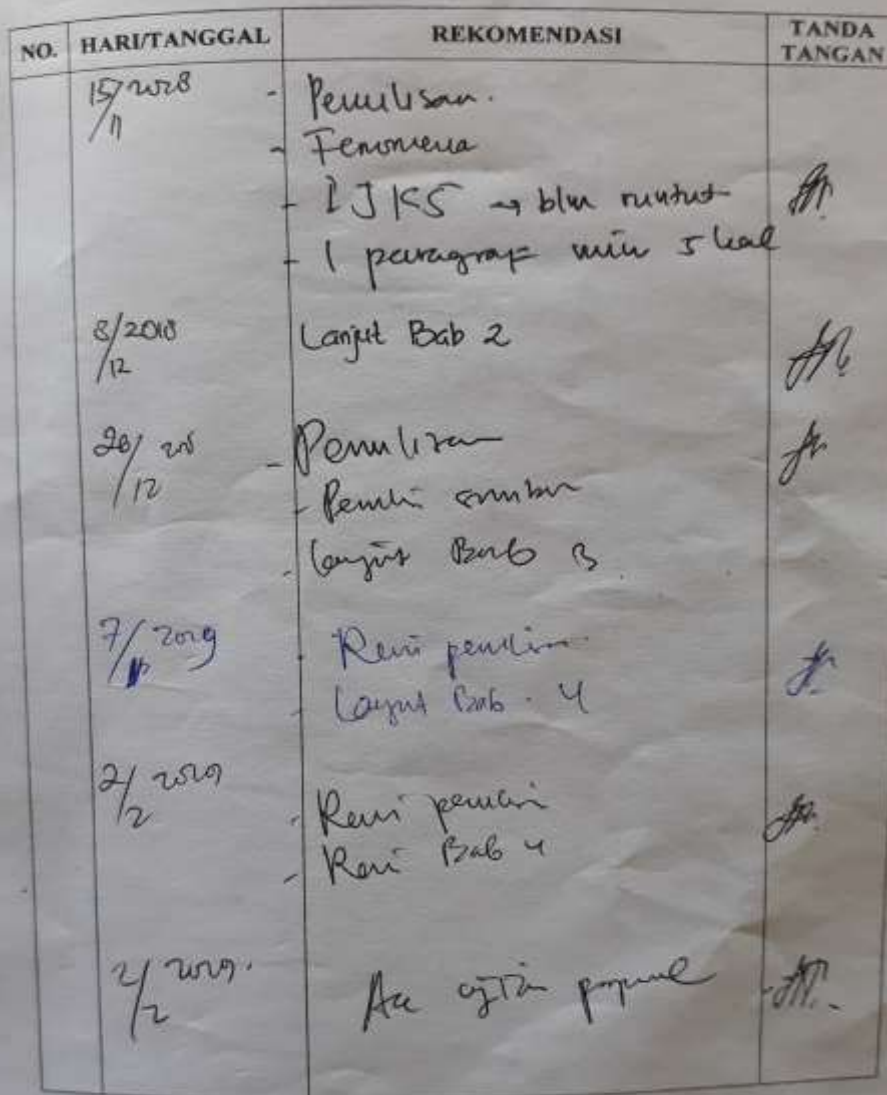 NO. HARI/TANGGAL REKOMENDASI TANDA TANGAN
15/11 2018 - Penulisan.
- Fenomena
- IJKS → blm runtut
- 1 paragraf min 5 kal
8/12 2018 Lanjut Bab 2
20/12 - Penulisan
- Penulis sumber
- Lanjut Bab 3
7/ 2019 - Revisi
- Lanjut Bab. 4
2/2 2019 - Revisi
- Revisi Bab 4
2/2 2019. Acc ujian proposal